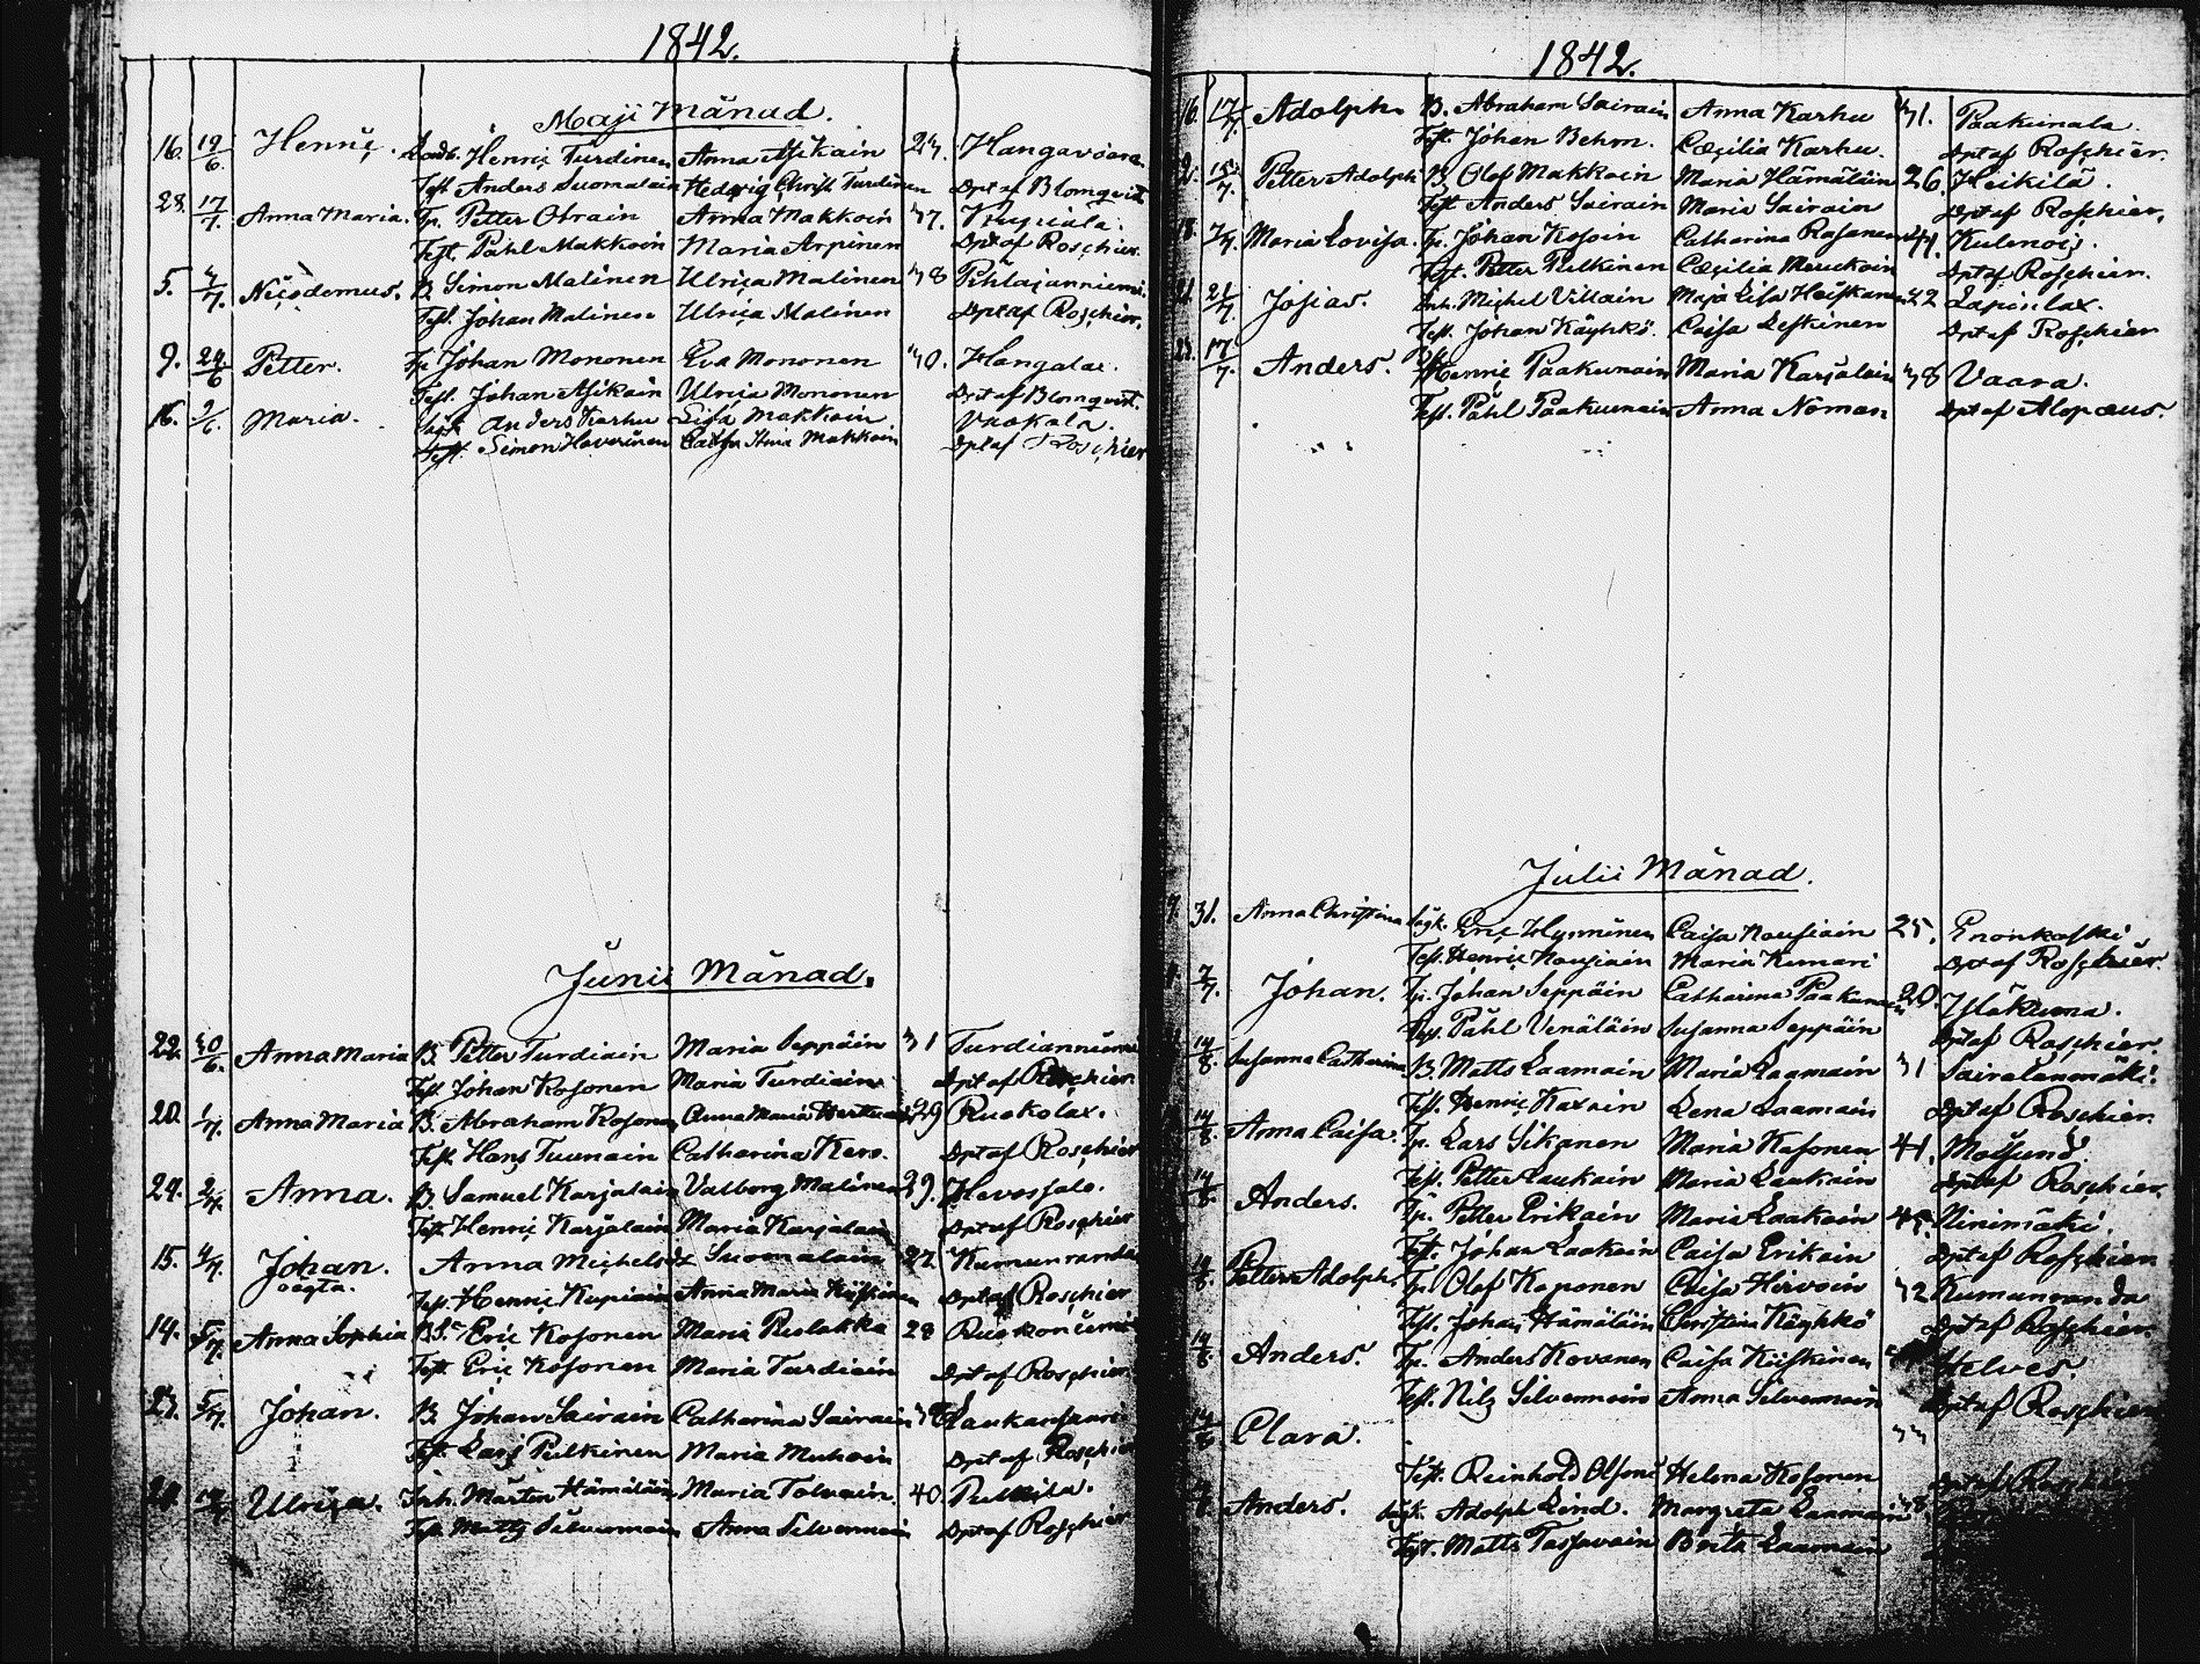 1842.
Maji Månad.
16. 19/6. Henric. Henric Turdinen Anna Asikain 23. Hangavaara.
Test. Anders Suomalain Hedvig Christ. Turdinen Dpt af Blomqvist
28. 17/7. Anna Maria. Tp. Petter Obrain Anna Makkoin 37. Kupiala.
Test. Påhl Makkoin Maria Arpinen Dpt af Roschier.
5. 3/7. Nicodemus. B. Simon Malinen Ulrica Malinen 38 Pihlajanniemi.
Test. Johan Malinen Ulrica Malinen Dpt af Roschier.
9. 29/6 Petter. Tp. Johan Mononen Eva Mononen 30. Hangalax.
Test. Johan Asikain Ulrica Mononen Dpt af Blomqvist.
16. Maria. Anders Karhu Lisa Makkoin Vuokala.
Test. Simon Haverinen Caisa Makkoin Dpt af Roschier
Junii Månad.
22. 30/6. Anna Maria B. Petter Turdiain Maria Seppäin 31
Test. Johan Kosonen Maria Turdiain Dpt af Roschier
20. 1/7. Anna Maria B. Abraham Kosonen Anna Maria 29 Ruokolax.
Test. Hans Tuunain Catharina Kero. Dpt af Roschier
24. 2/7. Anna. B. Samuel Karjalain Valborg Malinen 39. Hevossalo.
Test. Henric Karjalain Maria Karjalain Dpt af Roschier
15. 4/7. Johan. Anna Michelsdr Suomalain 27 Kumunranda
oägta. Test. Henric Kupiain Anna Maria Kiiskinen Dpt af Roschier
14. 5/7. Anna Sophia B.S. Eric Kosonen Maria Puolakka 28 Ruokoniemi
Test. Eric Kosonen Maria Turdiain Dpt af Roschier
23. 5/7. Johan. B. Johan Sairain Catharina Sairain Laukansaari
Test. Lars Pulkinen Maria Muhoin Dpt af Roschier
Ulrica. Inh. Mårten Hämäläin Maria Tolvain. 40 Pulkila.
Test. Matts Silvermoin Anna Silvermoin Dpt af Roschier
1842.
16. 17/7. Adolph. B. Abraham Sairain Anna Karhu 31. Paakunala.
Test. Johan Behm. Cæcilia Karhu. Dpt af Roschier.
15/7. Petter Adolph B. Olof Makkoin Maria Hämäläin 26. Heikilä.
Test. Anders Sairain Maria Sairain Dpt af Roschier.
18. Maria Lovisa. Tp. Johan Kosoin Catharina Rasanen 41. Kulenoi.
Test. Petter Pulkinen Cæcilia Maukoin Dpt af Roschier.
21/7. Josias. Inh. Michel Villain Maja Lisa Heiskanen 22 Lapinlax.
Test. Johan Käyhkö. Caisa Leskinen Dpt af Roschier
17/7. Anders. Henric Paakunain Maria Karjalain 38 Vaara.
Test. Påhl Paakunain Anna Noman Dpt af Alopæus.
Julii Månad.
31. Anna Christina Eric Hynninen Caisa Kousiain 25. Enonkoski
Test. Henric Kousiain Maria Kumari Dpt af Roschier.
7/7. Johan. Tp. Johan Seppäin Catharina Paakunain 20.
Test. Påhl Venäläin Susanna Seppäin Dpt af Roschier.
14/8. Susanna Catharina B. Matts Laamain Maria Laamain 31 Sairalanmäki.
Test. Henric Kaxoin Lena Laamain Dpt af Roschier.
14/8. Anna Caisa. Tp. Lars Sikanen Maria Kosonen 41. Moisund.
Test. Petter Laukain Maria Laukain Dpt af Roschier.
14/8. Anders. Tp. Petter Erikain Maria Laakoin Ninimäki.
Test. Johan Laakoin Caisa Erikain Dpt af Roschier
14/8. Petter Adolph. Tp. Olof Koponen Caisa Hirvoin 32 Kumunranda
Test. Johan Hämäläin Christina Käyhkö Dpt af Roschier.
14/8. Anders. Tp. Anders Kovanen Caisa Kiiskinen Helves.
Test. Nils Silvermoin Anna Silvermoin Dpt af Roschier
14/8. Clara. 33
Test. Reinhold Olsoni Helena Kosonen
Anders. Adolph Lind. Margreta Laamain 38
Test. Matts Tassavain Brita Laamain